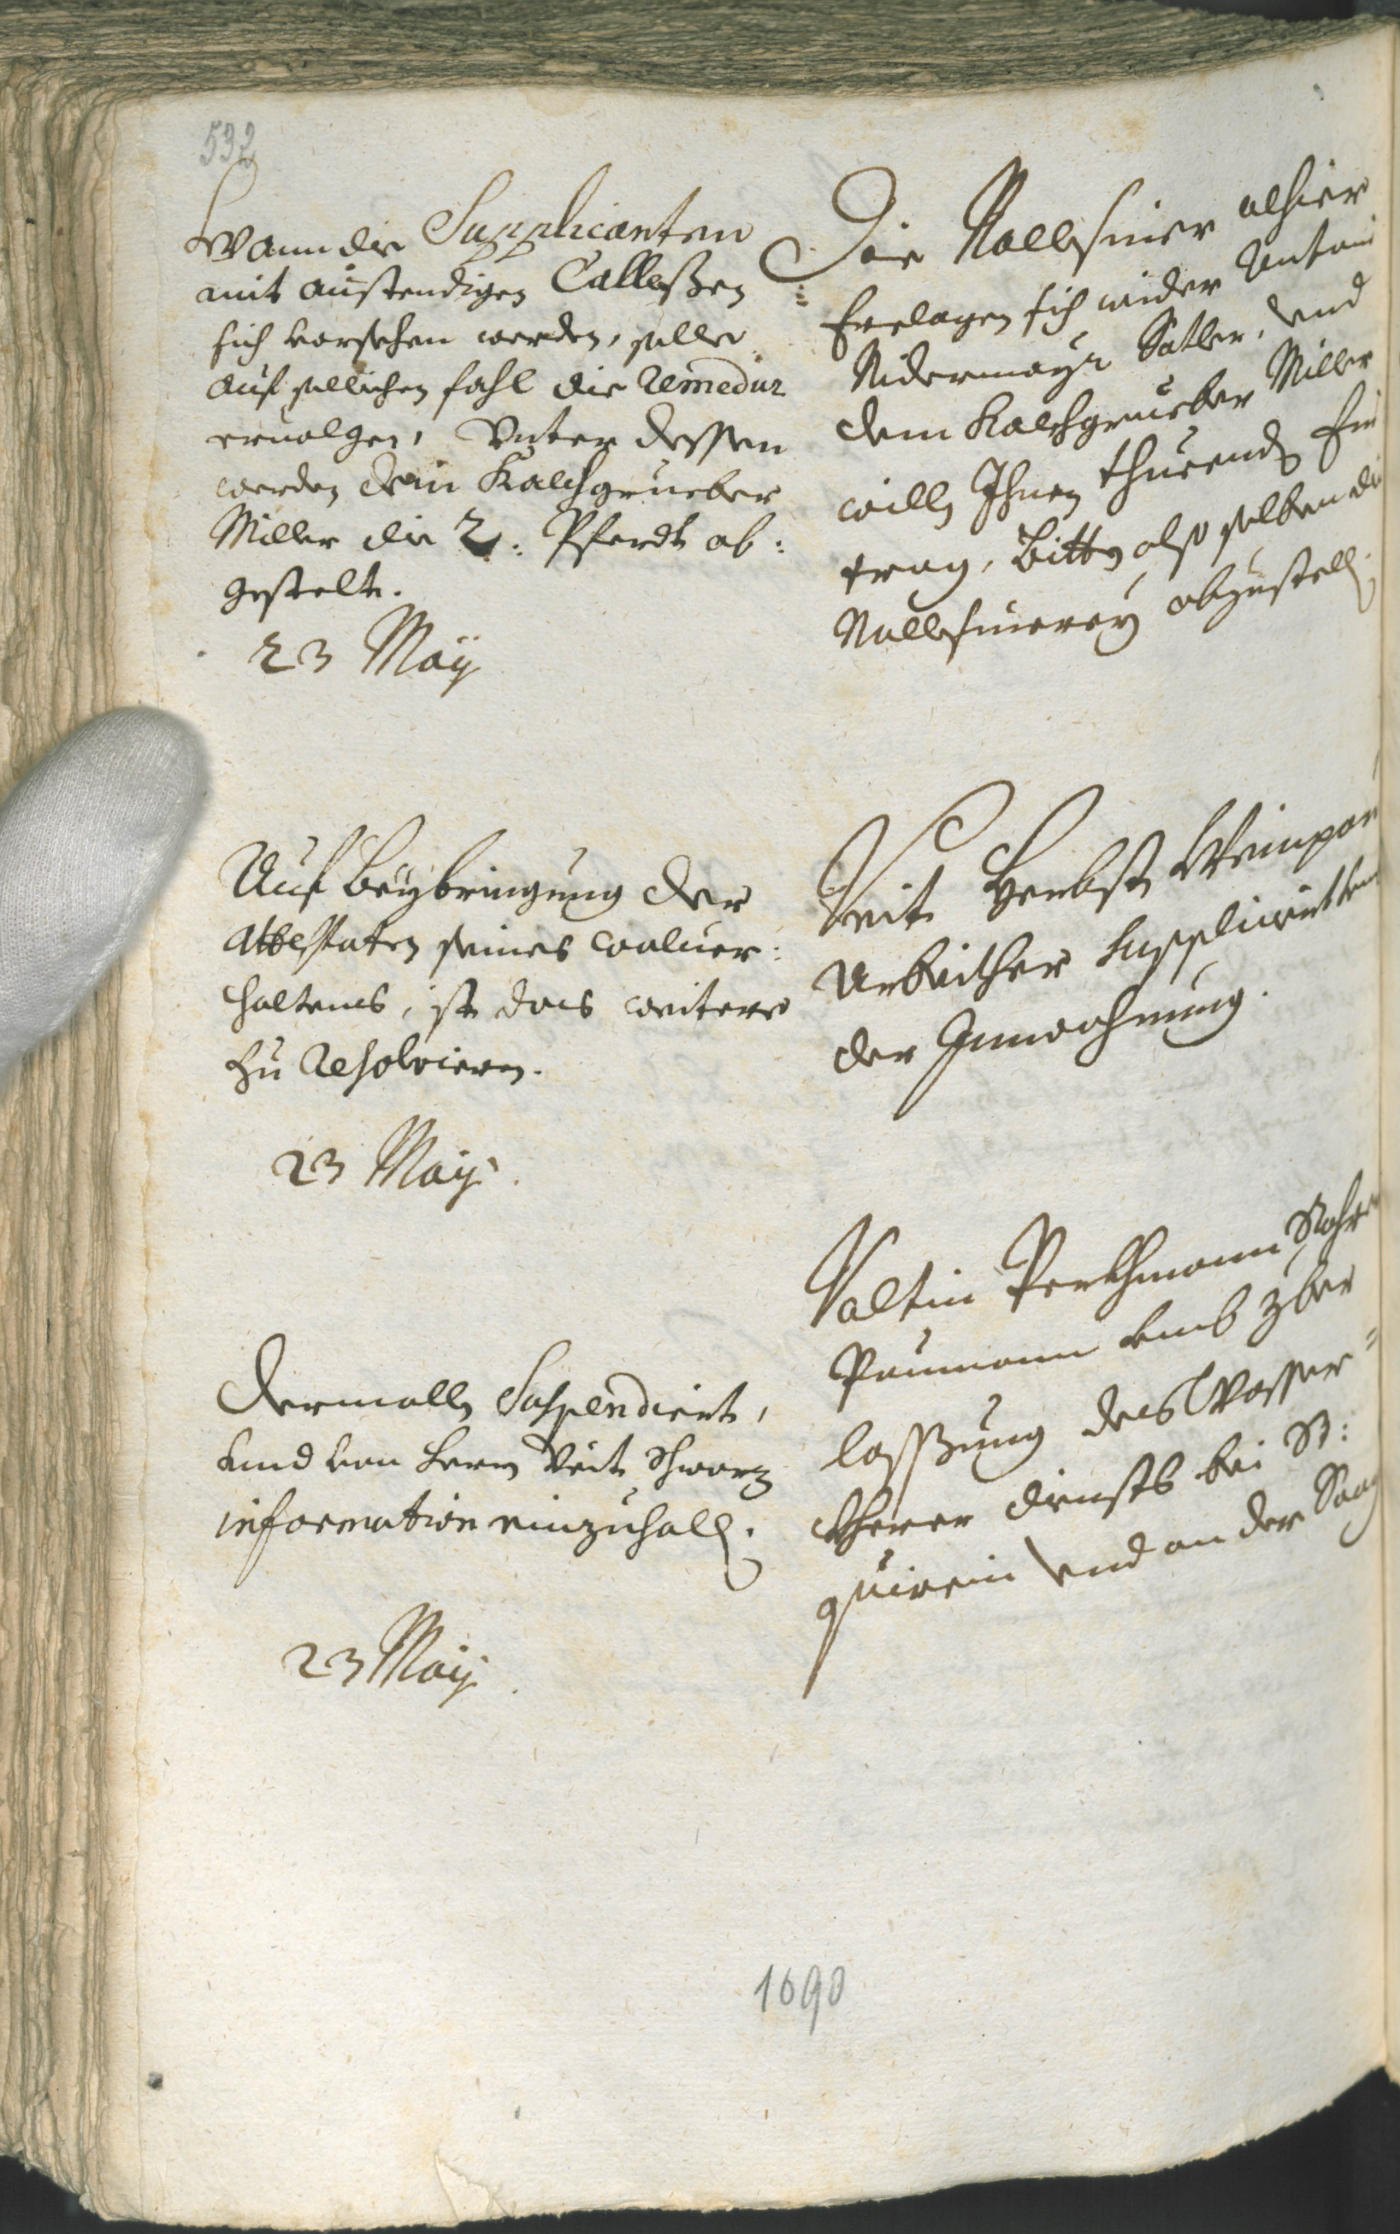 532
Wann die Supplicanten
mit austendigen Callessen
sich vorsehen werden, solle
auf sollichen fahl die Remedur
ervolgen, Unter dessen
werden dem Kalchgrueber
Miller die 2: Pferdt ab:
gestelt.
23 Maÿ
Die Rollfuerer alhier
beclagen sich wider Antoni
Nidermayr Satler, und
dem Kalchgrueber Miller
willen Ihnen thuenden Ein
trag, Bitten also selben die
Rollfuerereÿ abzustellen
Auf Beÿbringung der
Attestaten seines wolver:
haltens, ist das weitere
zu Resolvieren.
23 Maÿ.
Veit Herbst Weinpau
Arbeither suppliciert umb
der Inwohnung.
Dermallen Suspendiert,
und von Herrn Veit Schwarz
information einzuhollen.
23 Maÿ.
Valtin Perkhmann Rohr
Paumann umb yber
lassung des Wasser=
diensts bei St:
Quirein und an der Saag
1690